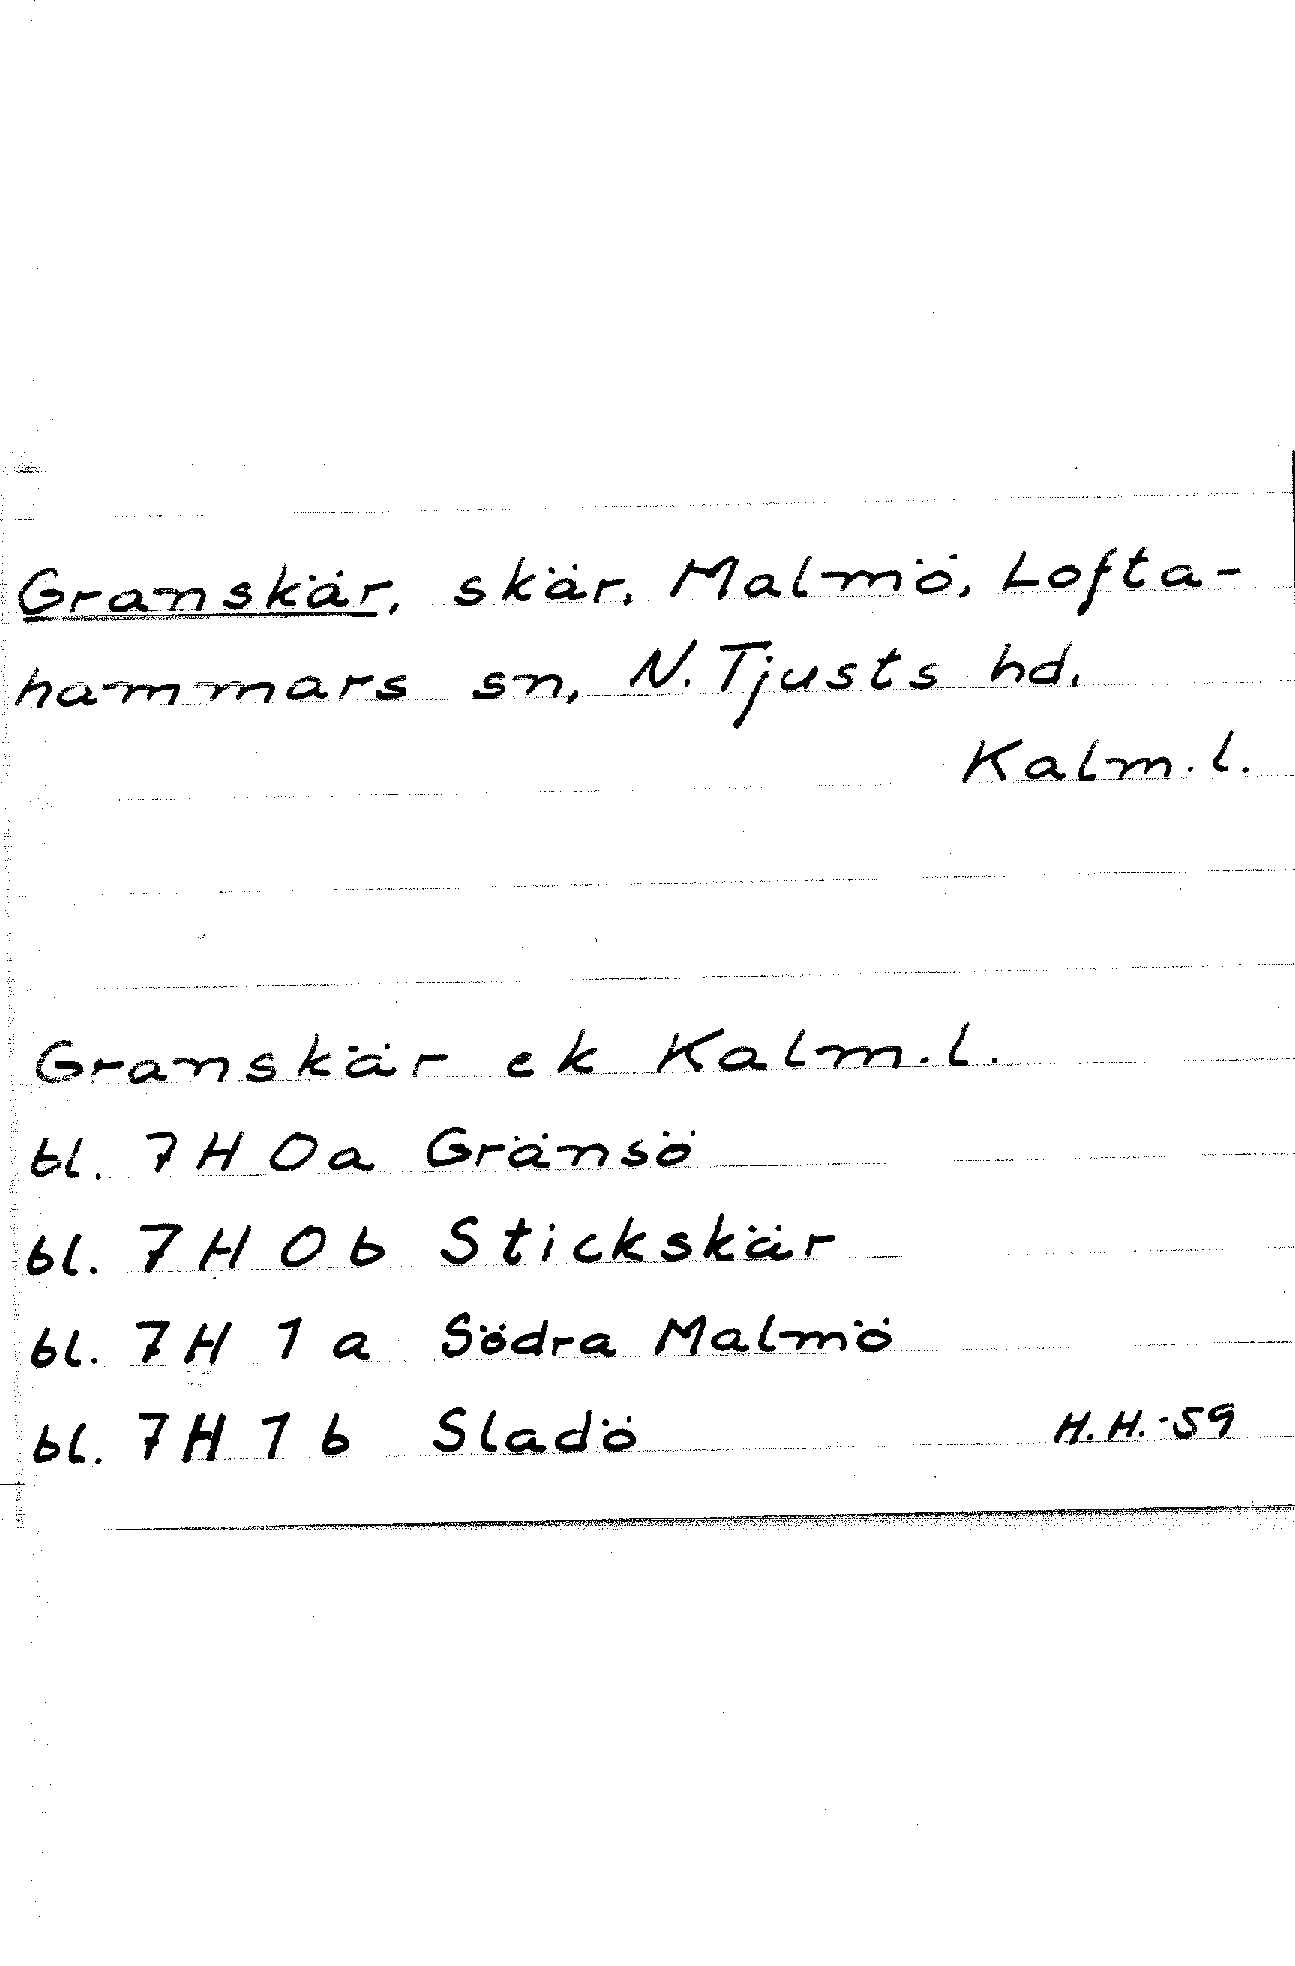 Granskär, skär, Malmö, Lofta-
hammars sn, N. Tjusts hd.
Kalm. l.
Granskär ek Kalm. l.
bl. 7 H 0 a Gränsö
bl. 7 H 0 b Stickskär
bl. 7 H 1 a Södra Malmö
bl. 7 H 1 b Sladö H.H.-59